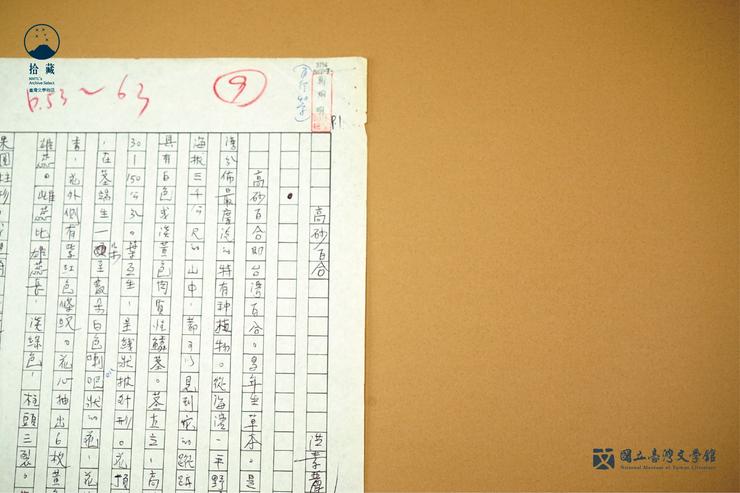 拾藏
NMTL's
Archive Select
臺灣文學物語
p.53～63
9
P1
高砂百合
洪素麗
高砂百合即台灣百合。多年生草本。是
灣分佈最廣泛的特有種植物。從海濱、平野
海拔三千公尺的山中，都可以見到它的蹤跡
具有白色或淡黃色肉質性鱗莖。莖直立，高
30—150公分。葉互生，呈線狀披針形。花頂
，在莖端生一朵至數朵白色喇叭狀的花，花
青，花外側有紫紅色條紋。花心抽出6枚黃
雄蕊。雌蕊比雄蕊長，淡綠色，柱頭三裂。
果圓柱形，
國立臺灣文學館
National Museum of Taiwan Literature